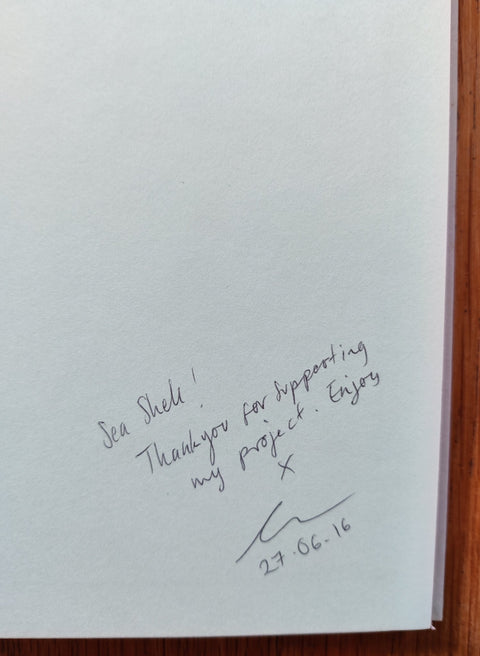 Sea Shell!
Thankyou for supporting
my project. Enjoy
X
27.06.16